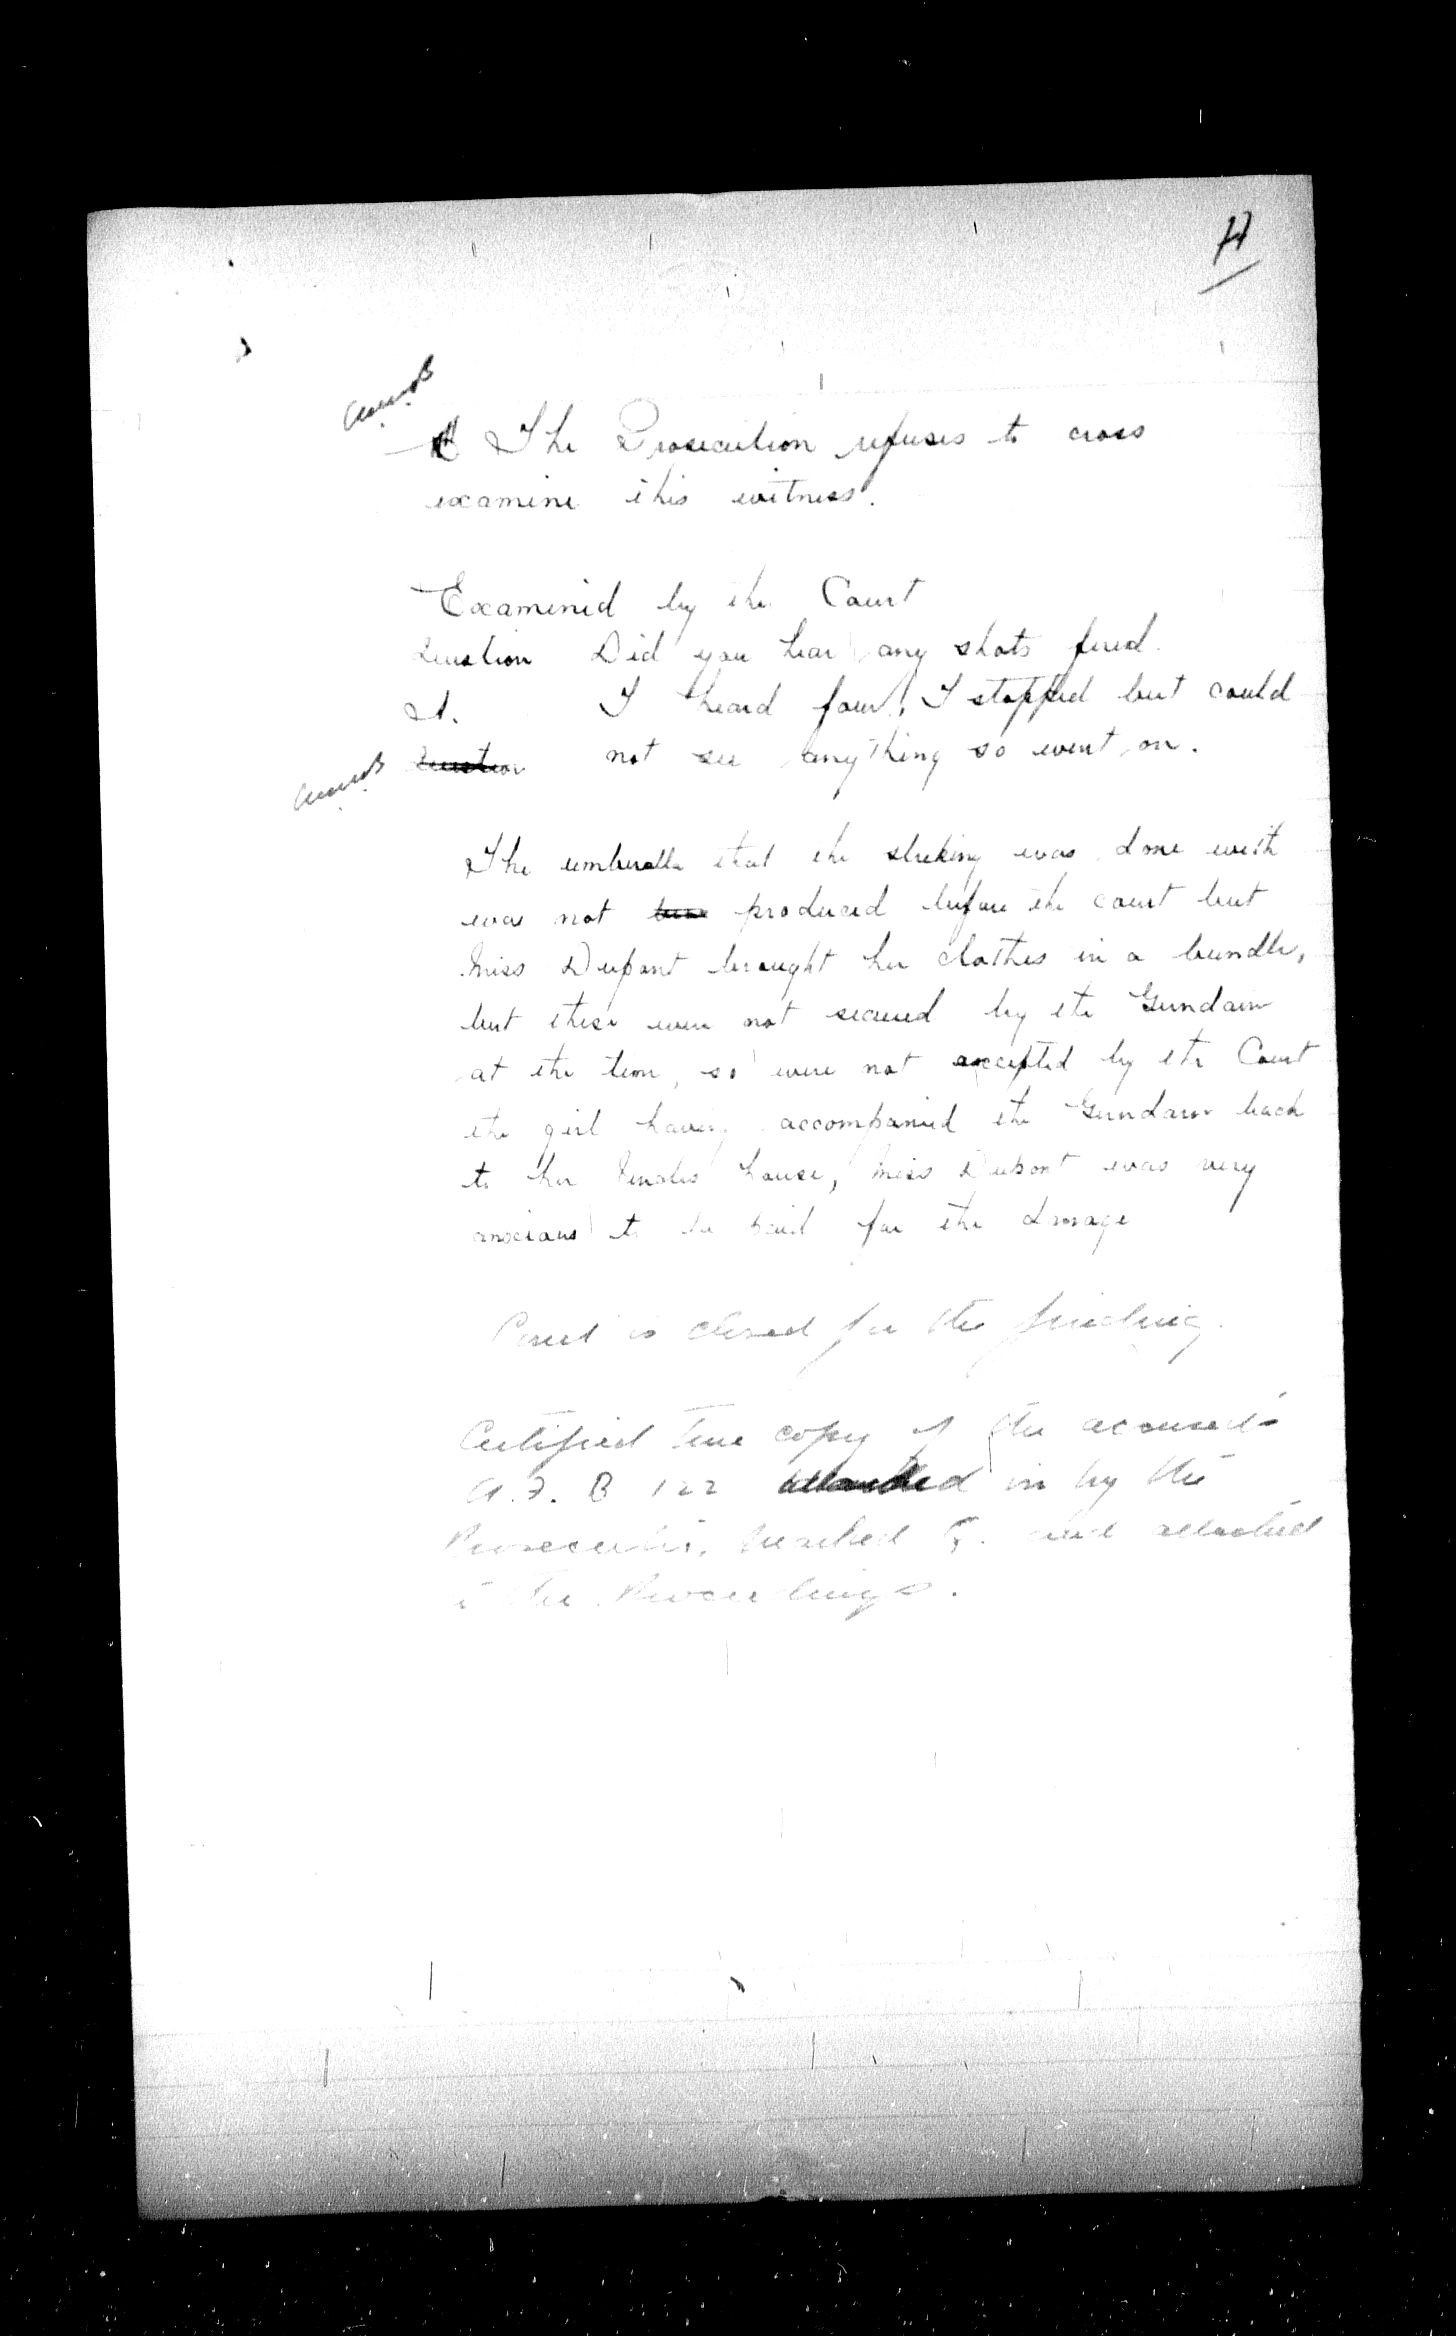 H
The Prosecution refuses to cross
examine this witness.
Examined by the Court
Question Did you hear any shots fired.
A. I heard four, I stopped but could
Question not see anything so went on.
The umbrella that the striking was done with
was not been produced before the court but
Miss Dupont brought her clothes in a bundle,
but these were not secured by the Gendarm
at the time, so were not accepted by the Court
the girl having accompanied the Gendarm back
to her house, Miss Dupont was very
anxious to be paid for the damage
Court is closed for the finding.
Certified true copy of the accused's
A.F. B 122 handed in by the
Prosecutor, marked and attached
to the Proceedings.